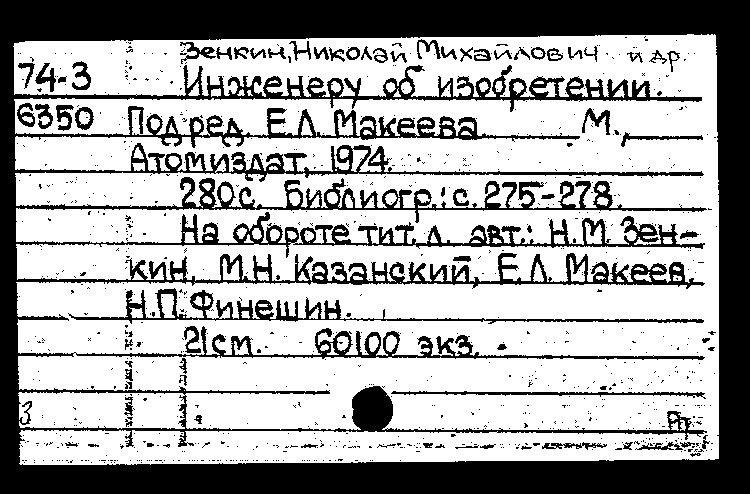 Зенкин, Николай Михайлович и др.
74-3 Инженеру об изобретении.
6350 Под ред. Е.Л. Макеева М.,
Атомиздат, 1974.
280с. Библиогр.: с. 275-278.
На обороте тит. л. авт.: Н.М. Зен-
кин, М.Н. Казанский, Е.Л. Макеев,
Н.П. Финешин.
21см. 60100 экз.
3